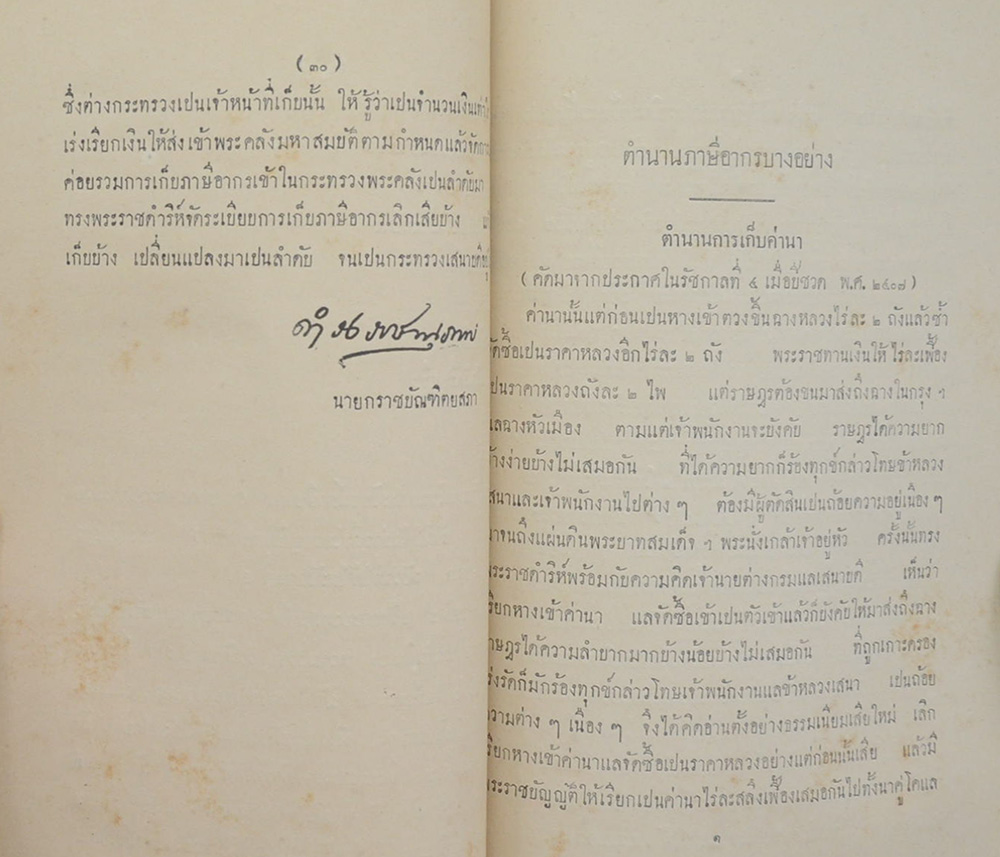 ( ๓๐ )
ซึ่งต่างกระทรวงเปนเจ้าหน้าที่เก็บนั้น ให้รู้ว่าเปนจำนวนเงิน
เร่งเรียกเงินให้ส่งเข้าพระคลังมหาสมบัติตามกำหนดแล้ว
ค่อยรวมการเก็บภาษีอากรเข้าในกระทรวงพระคลังเปนลำดับมา
ทรงพระราชดำริห์จัดระเบียบการเก็บภาษีอากรเลิกเสียบ้าง
เก็บบ้าง เปลี่ยนแปลงมาเปนลำดับ จนเปนกระทรวงเสนาบดี
นายกราชบัณฑิตยสภา
ตำนานภาษีอากรบางอย่าง
ตำนานการเก็บค่านา
( คัดมาจากประกาศในรัชกาลที่ ๔ เมื่อปีชวด พ.ศ. ๒๔๐๗ )
ค่านานั้นแต่ก่อนเปนหางเข้าตวงขึ้นฉางหลวงไร่ละ ๒ ถังแล้วซ้ำ
จัดซื้อเปนราคาหลวงอีกไร่ละ ๒ ถัง พระราชทานเงินให้ไร่ละเฟื้อง
เปนราคาหลวงถังละ ๒ ไพ แต่ราษฎรต้องขนมาส่งถึงฉางในกรุง ฯ
แลฉางหัวเมือง ตามแต่เจ้าพนักงานจะบังคับ ราษฎรได้ความยาก
บ้างง่ายบ้างไม่เสมอกัน ที่ได้ความยากก็ร้องทุกข์กล่าวโทษข้าหลวง
เสนาและเจ้าพนักงานไปต่าง ๆ ต้องมีผู้ตัดสินเปนถ้อยความอยู่เนือง ๆ
มาจนถึงแผ่นดินพระบาทสมเด็จ ฯ พระนั่งเกล้าเจ้าอยู่หัว ครั้งนั้นทรง
พระราชดำริห์พร้อมกับความคิดเจ้านายต่างกรมแลเสนาบดี เห็นว่า
เรียกหางเข้าค่านา แลจัดซื้อเข้าเปนตัวเข้าแล้วก็บังคับให้มาส่งถึงฉาง
ราษฎรได้ความลำบากมากบ้างน้อยบ้างไม่เสมอกัน ที่ถูกเกาะครอง
เร่งรัดก็มักร้องทุกข์กล่าวโทษเจ้าพนักงานแลข้าหลวงเสนา เปนถ้อย
ความต่าง ๆ เนือง ๆ จึงได้คิดอ่านตั้งอย่างธรรมเนียมเสียใหม่ เลิก
เรียกหางเข้าค่านาแลจัดซื้อเปนราคาหลวงอย่างแต่ก่อนนั้นเสีย แล้วมี
พระราชบัญญัติให้เรียกเปนค่านาไร่ละสลึงเฟื้องเสมอกันไปทั้งนาคู่โคแล
๑